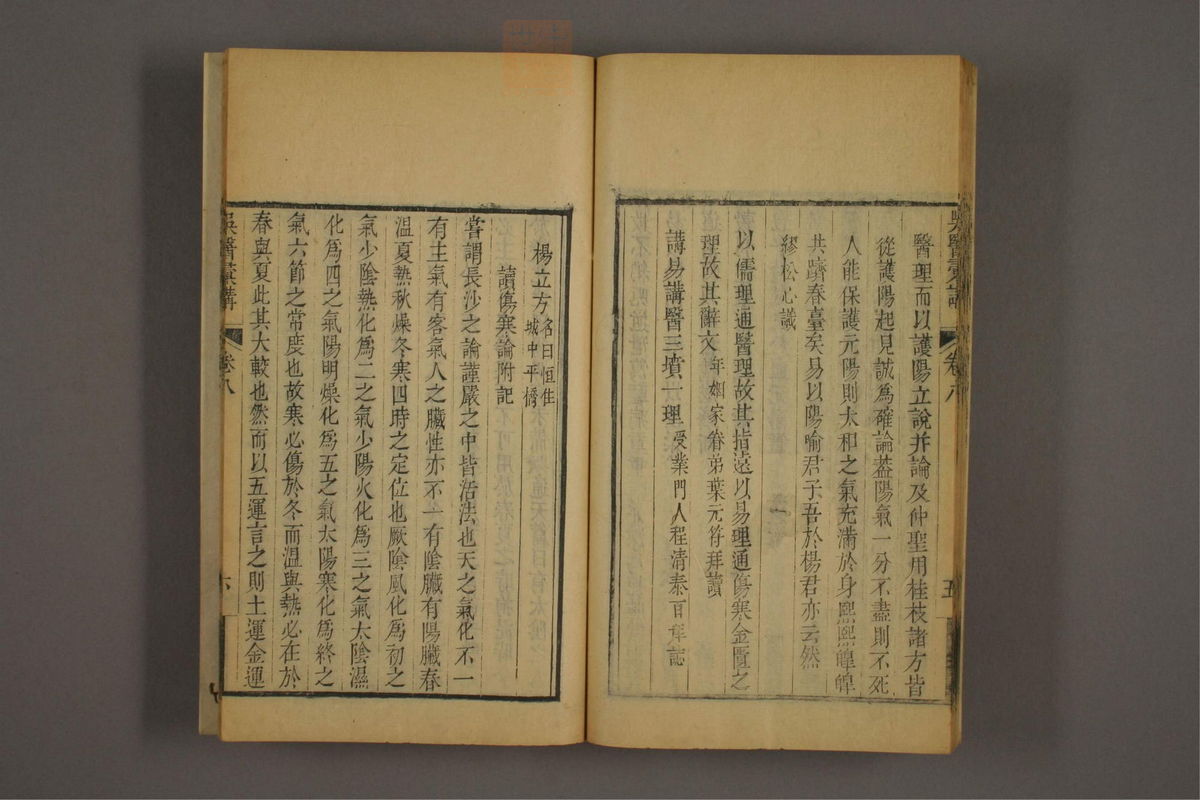 吳醫彙講
卷八
五
醫理而以護陽立說并論及仲聖用桂枝諸方皆
從護陽起見誠為確論蓋陽氣一分不盡則不死
人能保護元陽則太和之氣充滿於身熙熙皥皥
共躋春臺矣易以陽喻君子吾於楊君亦云然
繆松心識
以儒理通醫理故其指遠以易理通傷寒金匱之
理故其辭文 年姻家眷弟葉元符拜讀
講易講醫三墳一理 受業門人程清泰百拜誌
楊立方 名曰恒住城中平橋
讀傷寒論附記
嘗謂長沙之論謹嚴之中皆活法也天之氣化不一
有主氣有客氣人之臟性亦不一有陰臟有陽臟春
溫夏熱秋燥冬寒四時之定位也厥陰風化為初之
氣少陰熱化為二之氣少陽火化為三之氣太陰濕
化為四之氣陽明燥化為五之氣太陽寒化為終之
氣六節之常度也故寒必傷於冬而溫與熱必在於
春與夏此其大較也然而以五運言之則土運金運
吳醫彙講
卷八
六